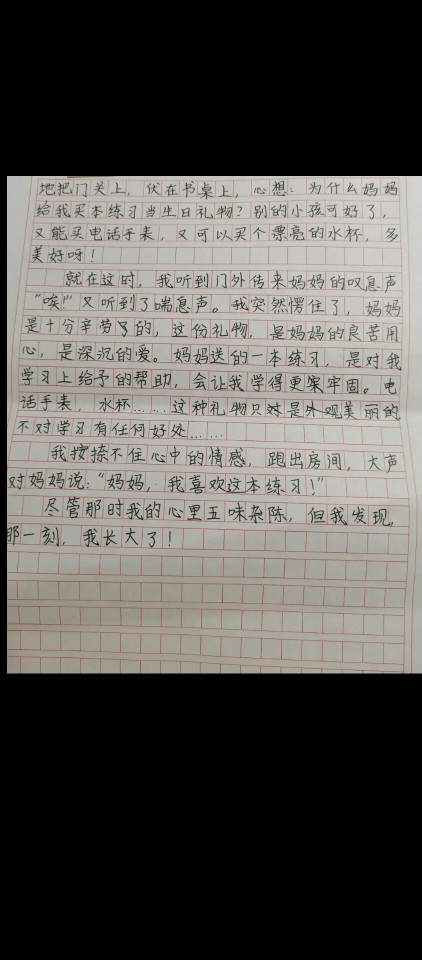 地把门关上，伏在书桌上，心想：为什么妈妈
给我买本练习当生日礼物？别的小孩可好了，
又能买电话手表，又可以买个漂亮的水杯，多
美好呀！
就在这时，我听到门外传来妈妈的叹息声
“唉！”又听到了喘息声。我突然愣住了，妈妈
是十分辛劳的，这份礼物，是妈妈的良苦用
心，是深沉的爱。妈妈送的一本练习，是对我
学习上给予的帮助，会让我学得更牢固。电
话手表，水杯……这种礼物只是外观美丽的
不对学习有任何好处……
我按捺不住心中的情感，跑出房间，大声
对妈妈说：“妈妈，我喜欢这本练习！”
尽管那时我的心里五味杂陈，但我发现，
那一刻，我长大了！